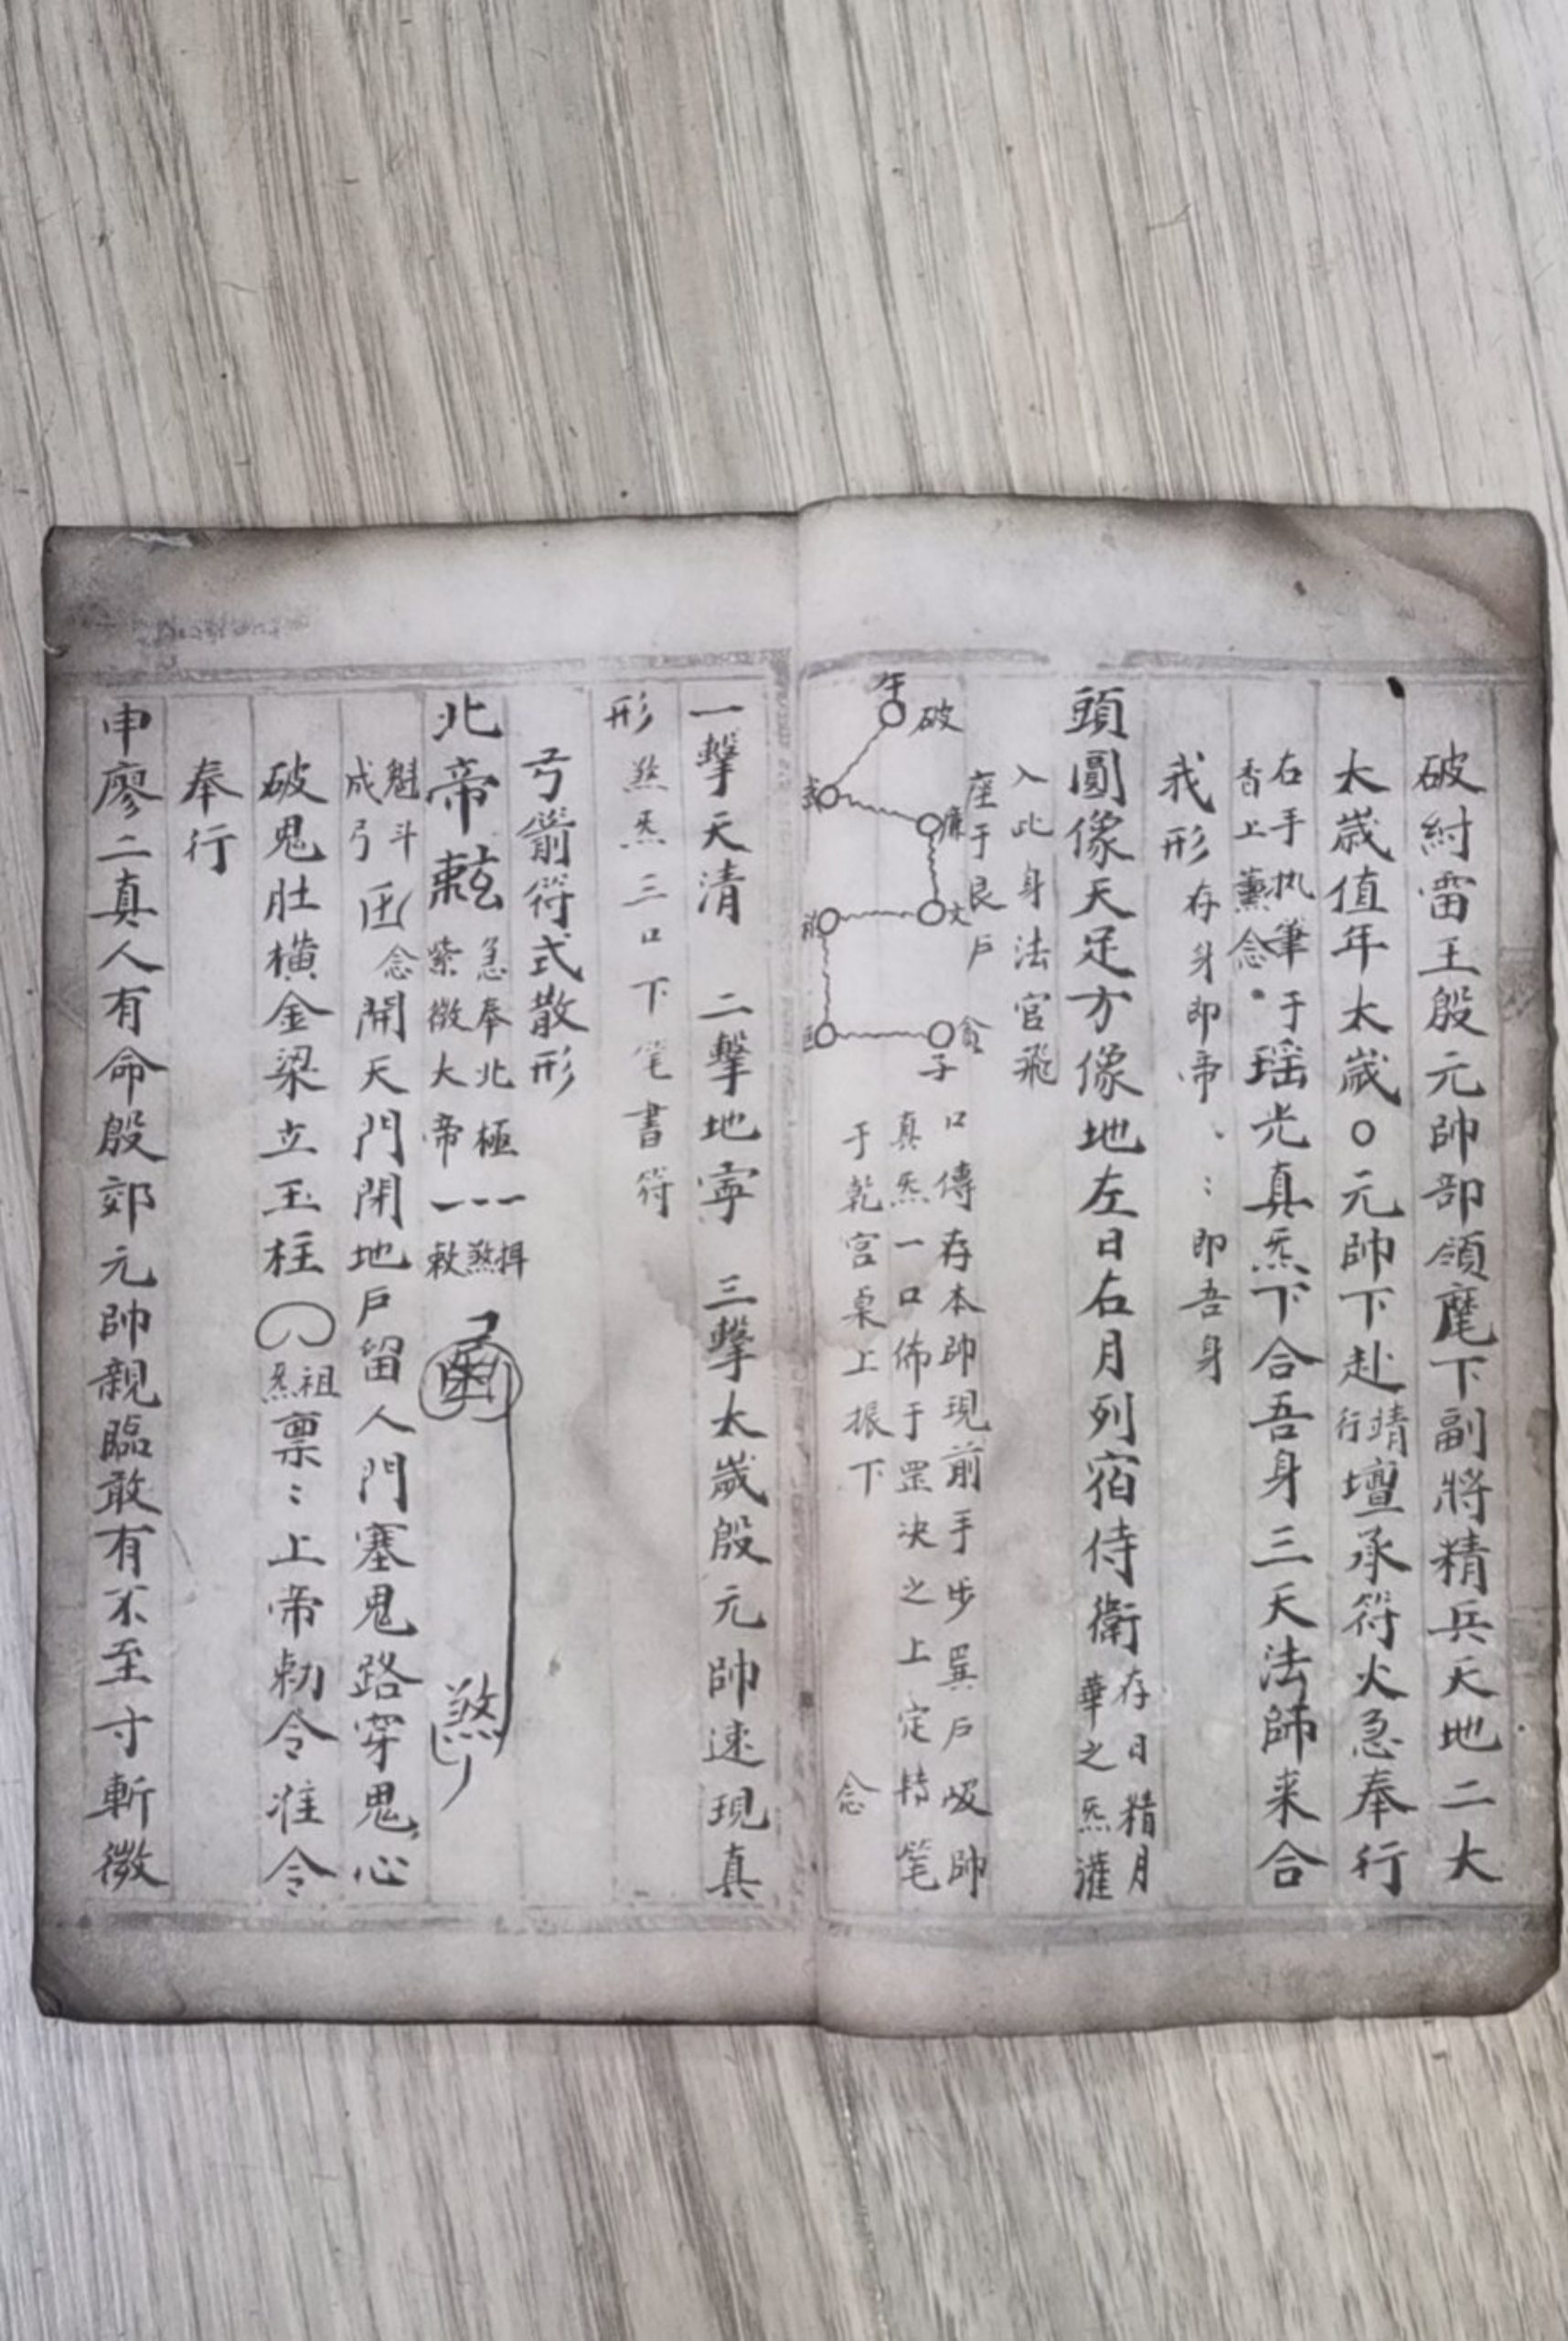 破紂雷王殷元帥部領麾下副將精兵天地二大
太歲值年太歲○元帥下赴靖行壇承符火急奉行
右手执筆于
香上薰念
瑶光真炁下合吾身三天法師来合
我形存身即帝、：即吾身
頭圓像天足方像地左日右月列宿侍衛
存日精月
華之炁灌
入此身法官飛
座于艮戶
午
破
武
廉
文
祿
巨
貪
子
口傳存本帥現前手步巽戶吸帥
真炁一口佈于罡决之上定持笔
于乾宫桌上振下
念
一擊天清 二擊地寧 三擊太歲殷元帥速現真
形
煞炁三口下笔書符
弓箭符式散形
北帝
急奉北極
紫微大帝
敕煞
煞
魁斗
成弓
念
開天門閉地戶留人門塞鬼路穿鬼心
破鬼肚橫金梁立玉柱
祖炁
票：上帝勅令准令
奉行
申廖二真人有命殷郊元帥親臨敢有不至寸斬徽